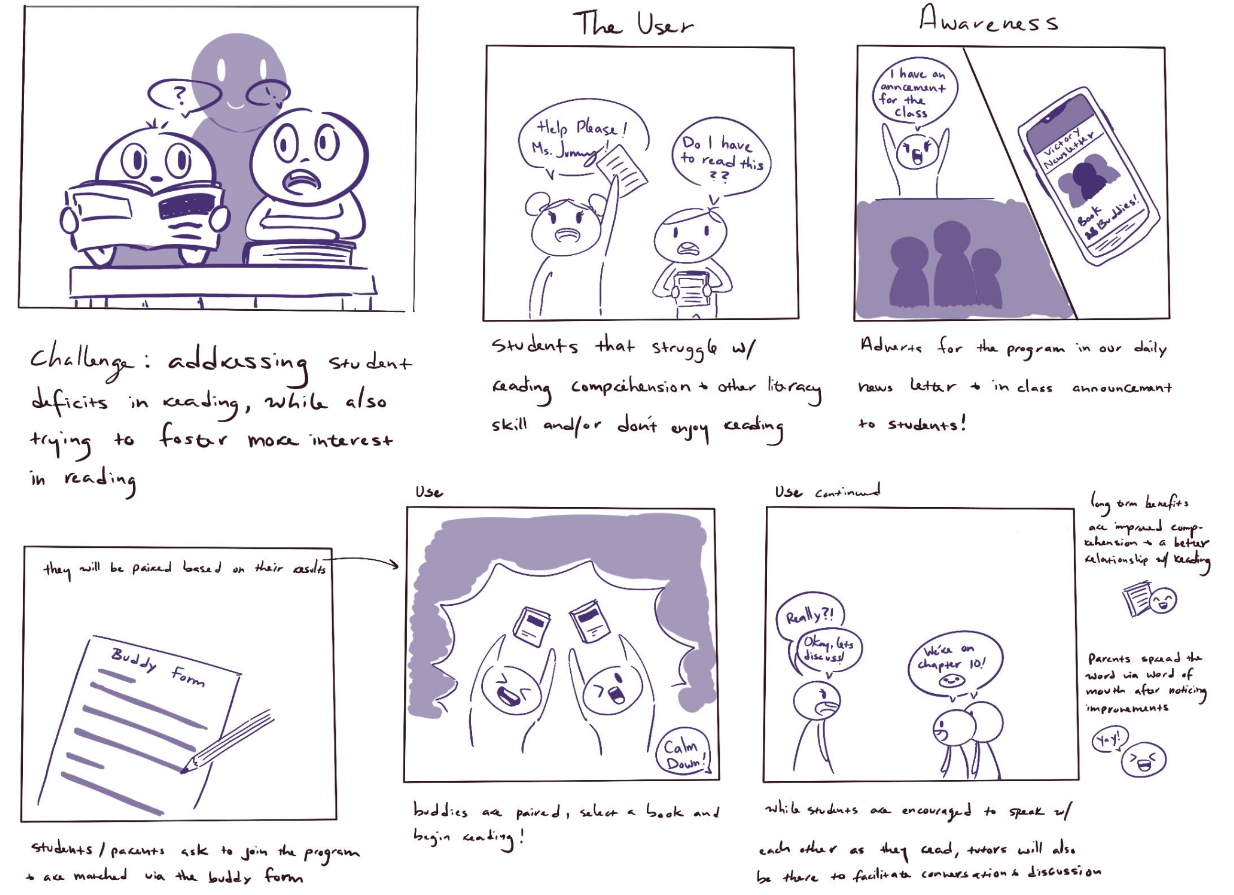 ?
!
Challenge: addressing student
deficits in reading, while also
trying to foster more interest
in reading
The User
Help Please!
Ms.
Do I have
to read this
??
Students that struggle w/
reading comprehension + other literacy
skill and/or don't enjoy reading
Awareness
I have an
anncement
for the
class
Victory
Newsletter
Book
Buddies!
Adverts for the program in our daily
news letter + in class announcement
to students!
they will be paired based on their results
Buddy Form
students/parents ask to join the program
+ are matched via the buddy form
Use
Calm
Down!
buddies are paired, select a book and
begin reading!
Use continued
Really?!
Okay, lets
discuss!
We're on
chapter 10!
while students are encouraged to speak w/
each other as they read, tutors will also
be there to facilitate conversation & discussion
long term benefits
are improved comp-
rehension + a better
relationship w/ reading
Parents spread the
word via word of
mouth after noticing
improvements
Yay!